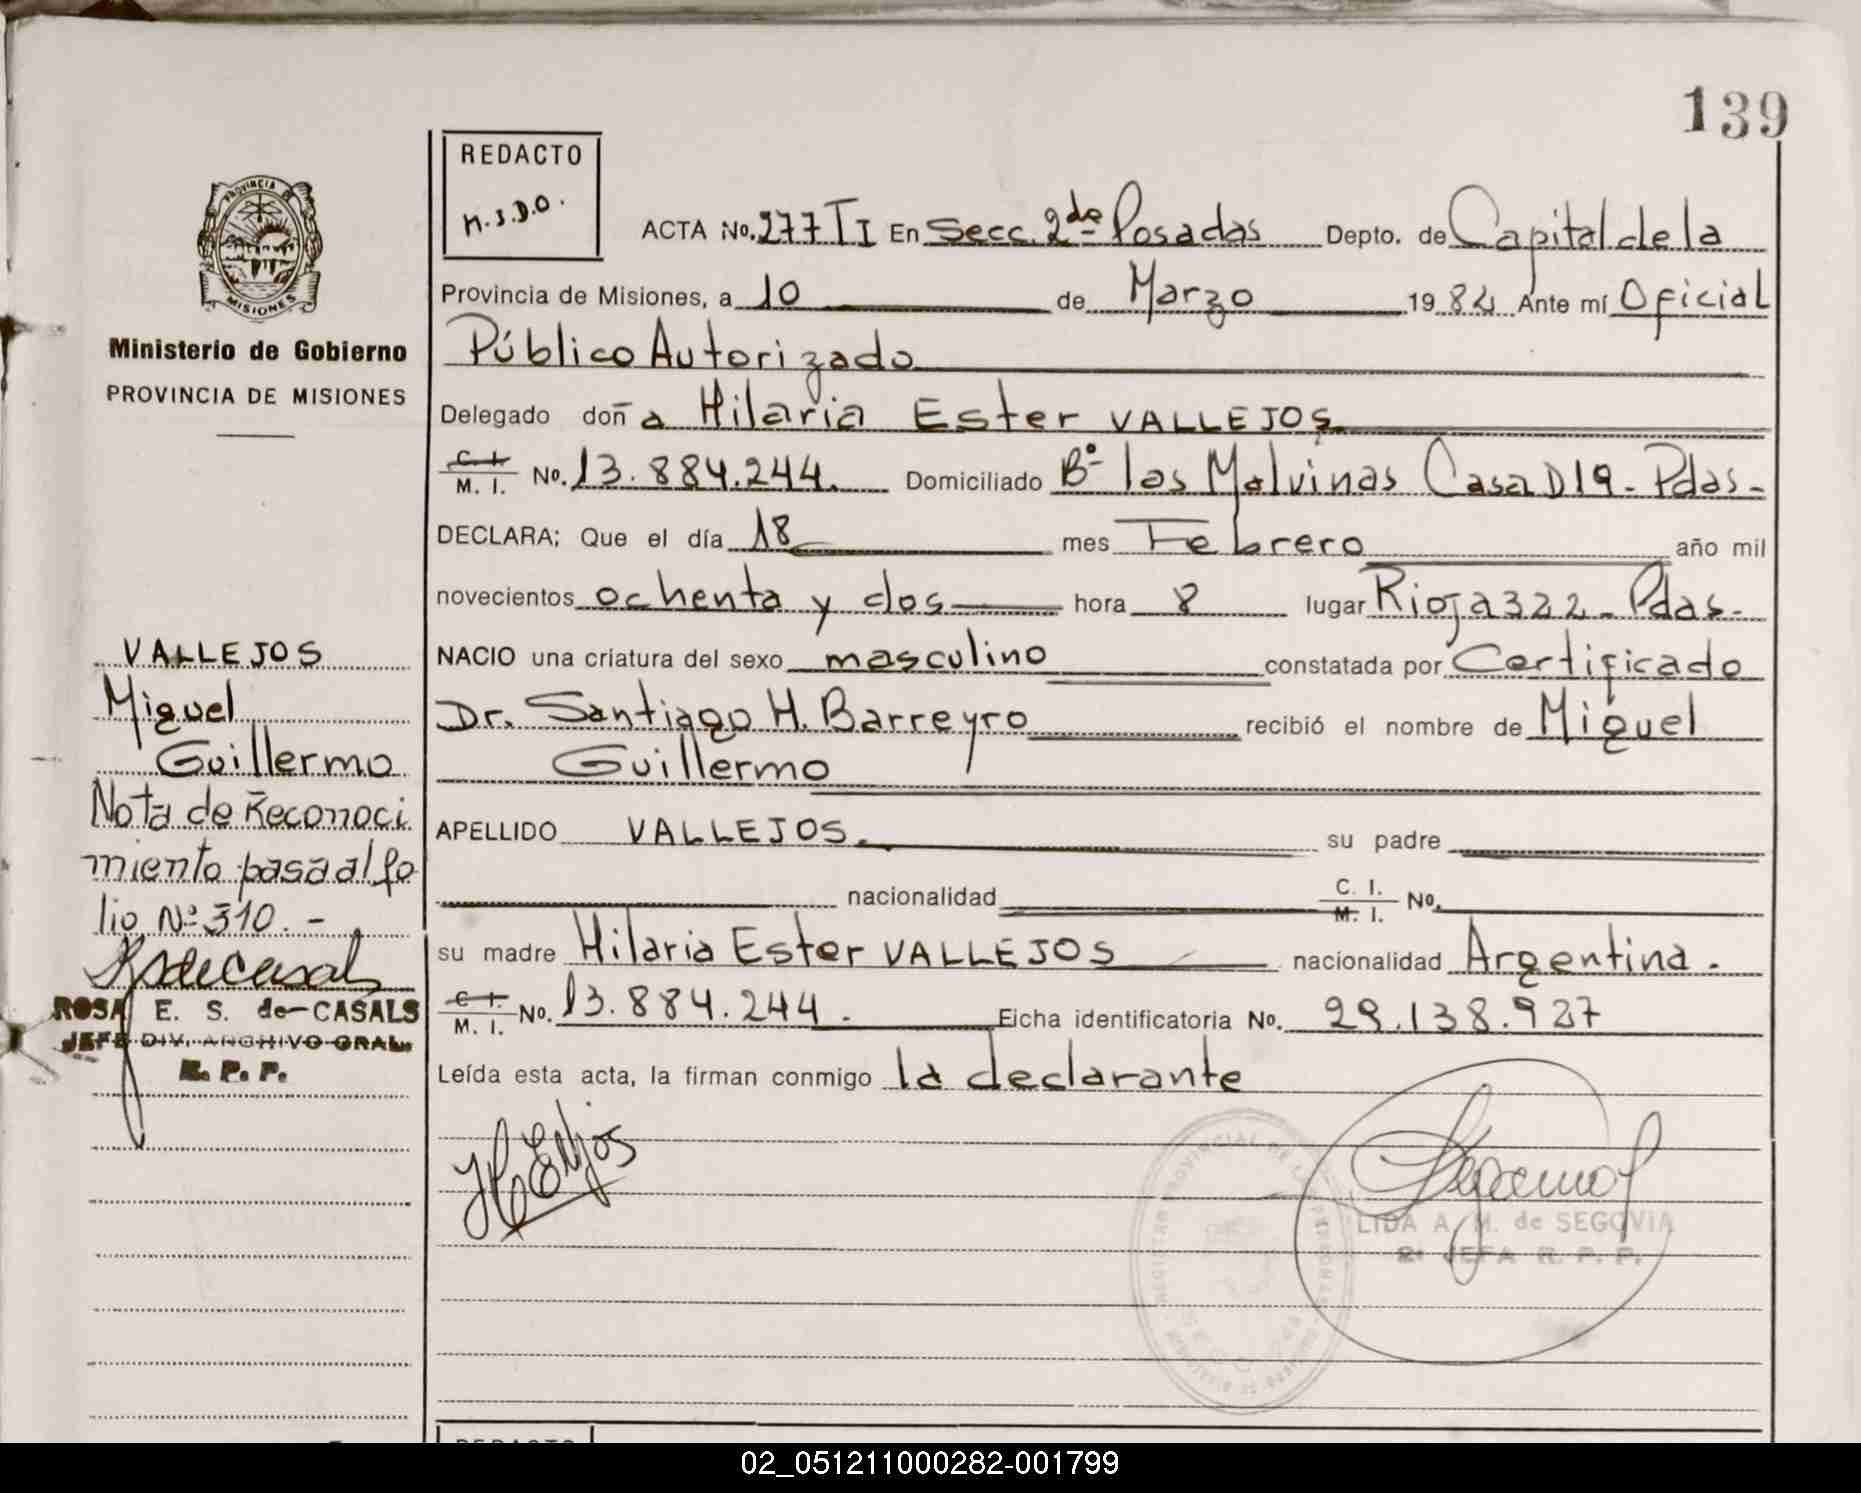 139
REDACTO
M.S.D.O.
ACTA No. 277 TI En Secc. 2da Posadas Depto. de Capital de la
Provincia de Misiones, a 10 de Marzo 1982 Ante mí Oficial
Público Autorizado
Delegado doña Hilaria Ester VALLEJOS
C. I. / M. I. No. 13.884.244. Domiciliado Bº las Malvinas Casa D19 - Pdas -
DECLARA; Que el día 18 mes Febrero año mil
novecientos ochenta y dos hora 8 lugar Rioja 322 - Pdas -
NACIO una criatura del sexo masculino constatada por Certificado
Dr. Santiago H. Barreyro recibió el nombre de Miguel
Guillermo
APELLIDO VALLEJOS. su padre
nacionalidad C. I. / M. I. No.
su madre Hilaria Ester VALLEJOS nacionalidad Argentina.
C. I. / M. I. No. 13.884.244. Ficha identificatoria No. 29.138.927
Leída esta acta, la firman conmigo la declarante
LIDA A. M. de SEGOVIA
2ª JEFA R. P. P.
PROVINCIA
MISIONES
Ministerio de Gobierno
PROVINCIA DE MISIONES
VALLEJOS
Miguel
Guillermo
Nota de Reconoci
miento pasa al fo
lio Nº 310. -
ROSA E. S. de CASALS
JEFE DIV. ARCHIVO GRAL.
R. P. P.
REDACTO
02_051211000282-001799